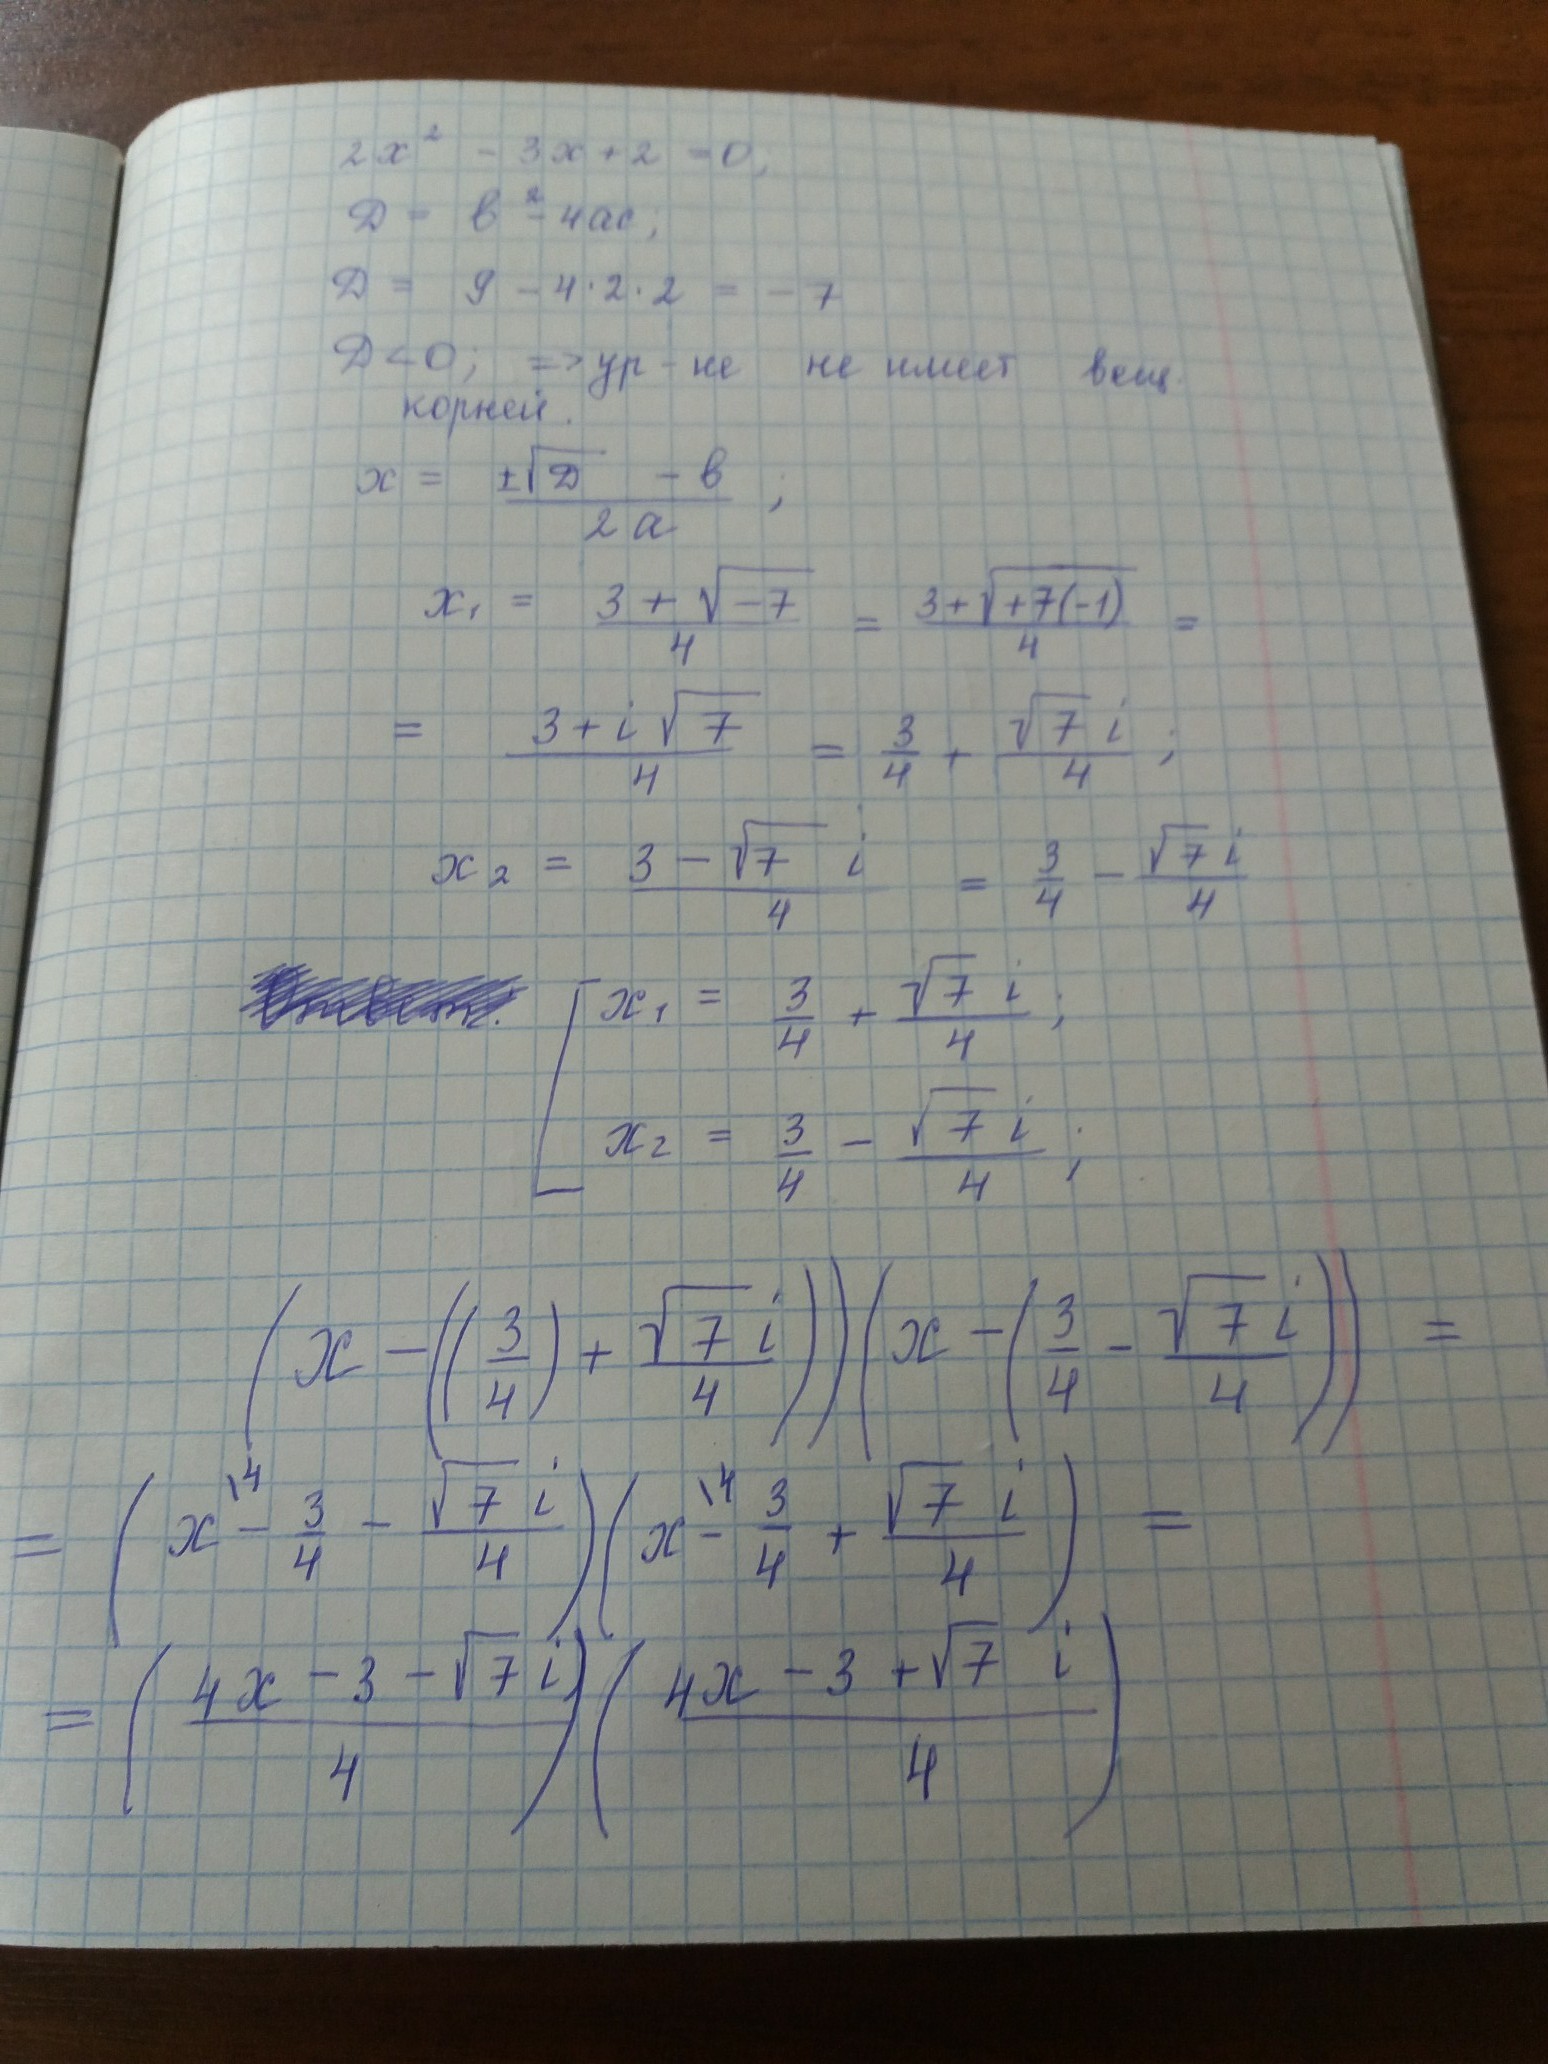 2x² - 3x + 2 = 0;
D = b² - 4ac;
D = 9 - 4·2·2 = -7
D < 0; => ур-не не имеет вещ.
корней.
x = (±√D - b)/(2a);
x₁ = (3 + √(-7))/4 = (3 + √(+7(-1)))/4 =
= (3 + i√7)/4 = 3/4 + (√7 i)/4;
x₂ = (3 - √7 i)/4 = 3/4 - (√7 i)/4
[ x₁ = 3/4 + (√7 i)/4;
x₂ = 3/4 - (√7 i)/4;
(x - ((3/4) + (√7 i)/4))(x - (3/4 - (√7 i)/4)) =
= (x\4 - 3/4 - (√7 i)/4)(x\4 - 3/4 + (√7 i)/4) =
= ((4x - 3 - √7 i)/4)((4x - 3 + √7 i)/4)